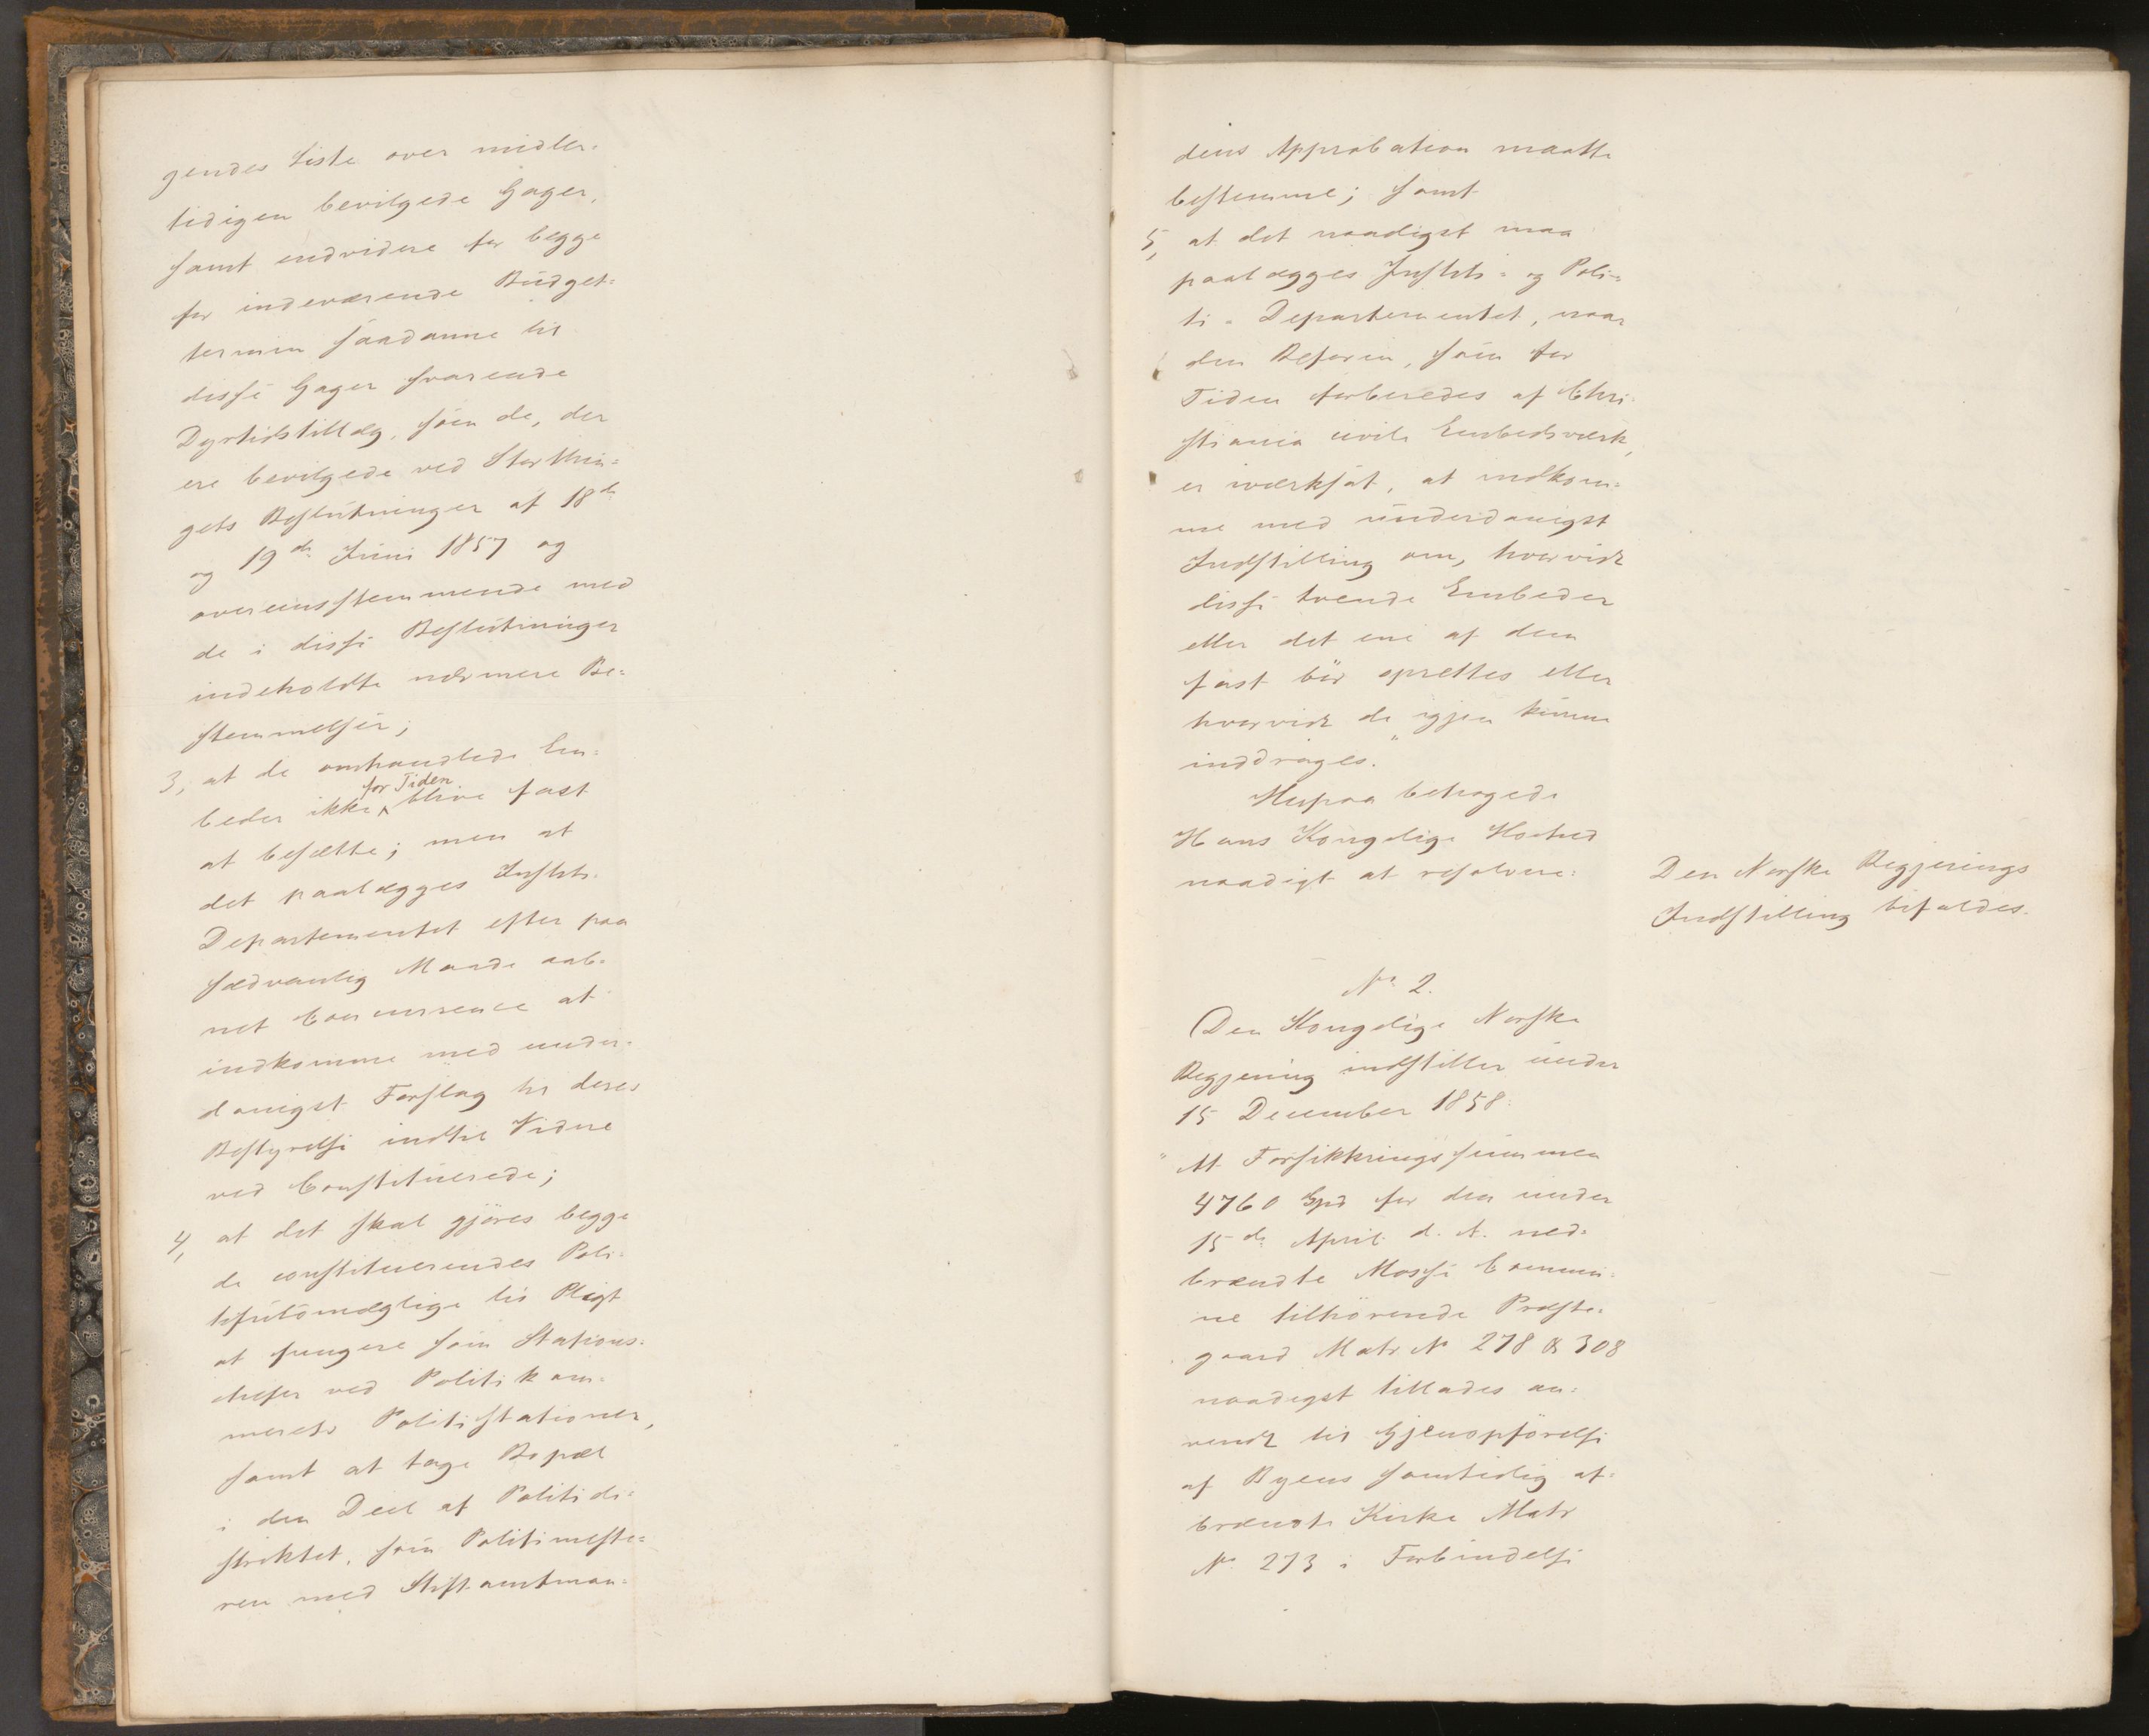 gendes Liste over midler-
tidigen bevilgede Gager,
samt endvidere for begge
for indeværende Budget-
termin saadanne til
disse Gager svarende
Dyrtidstillæg, som de, der
ere bevilgede ved Storthin-
gets Beslutninger af 18de
og 19de Juni 1857 og
overeensstemmende med
de i disse Beslutninger
indeholdte nærmere Be-
stemmelser;
3, at de omhandlede Em-
beder ikke for Tiden blive fast
at besætte; men at
det paalægges Justits-
Departementet efter paa
sædvanlig Maade aab-
net Concurrence at
indkomme med under-
danigst Forslag til deres
Bestyrelse indtil Videre
ved Constituerede;
4, at det skal gjøres begge
de constituerendes Poli-
tifuldmægtige til Pligt
at fungere som Stations-
chefer ved Politikam-
merets Politistationer,
samt at tage Bopæl
i den Deel af Politidi-
striktet, som Politimeste-
ren med Stiftamtman-
dens Approbation maatte
bestemme; samt
5, at det naadigst maa
paalægges Justits- og Poli-
ti-Departementet, naar
den Reform, som for
Tiden forberedes af Chri-
stiania civile Embedsværk,
er iværksat, at indkom-
me med underdanigst
Indstilling om, hvorvidt
disse tvende Embeder
eller det ene af dem
fast bör oprettes eller
hvorvidt de igjen kunne
inddrages."
Herpaa behagede
Hans Kongelige Høihed
naadigst at resolvere:
Den Norske Regjerings
Indstilling bifaldes.
No 2.
Den Kongelige Norske
Regjering indstiller under
15 December 1858:
"At Forsikkringssummen
4760 Spd for den under
15de April d. A. ned-
brændte Mosse Commu-
ne tilhörende Præste-
gaard Matr No 278 & 308
naadigst tillades an-
vendt til Gjenopförelse
af Byens samtidig af-
brændte Kirke Matr
No 273 i Forbindelse